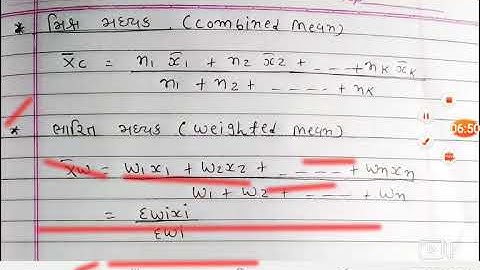 * મિશ્ર મધ્યક (Combined mean)
x̄c = n₁ x̄₁ + n₂ x̄₂ + - - - - + nₖ x̄ₖ
n₁ + n₂ + - - - - + nₖ
* ભારિત મધ્યક (Weighted mean)
x̄w = w₁x₁ + w₂x₂ + - - - - + wnxn
w₁ + w₂ + - - - - + wn
= Σwixi
Σwi
06:50